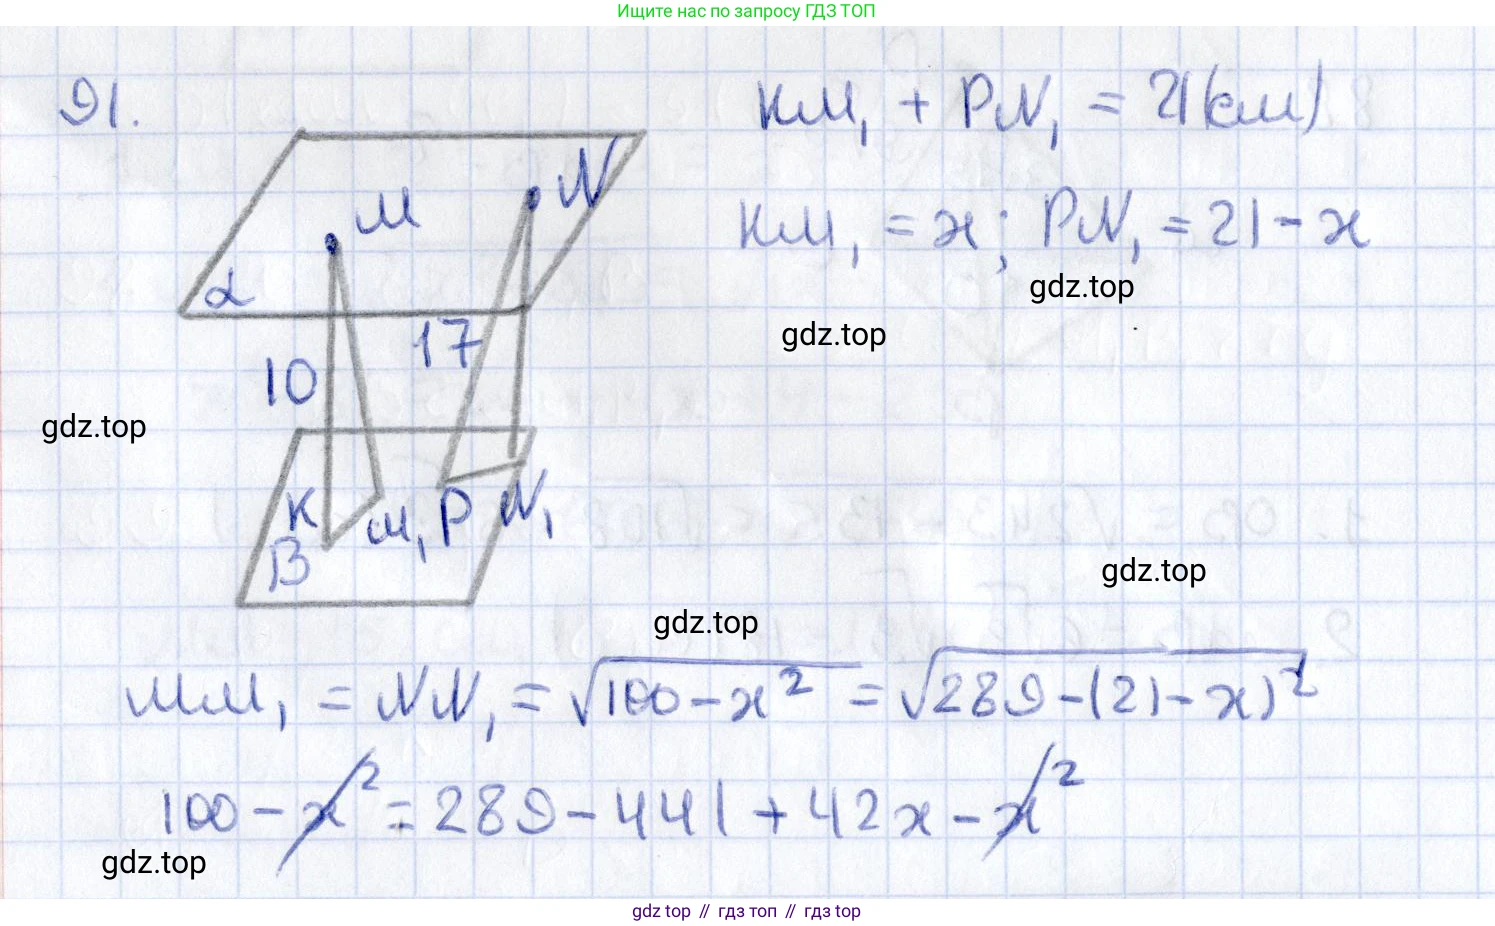 Ищите нас по запросу ГДЗ ТОП
91.
KM₁ + PN₁ = 21(см)
KM₁ = x; PN₁ = 21 - x
gdz.top
gdz.top
M
N
α
17
10
gdz.top
K
M₁
P
N₁
B
gdz.top
gdz.top
MM₁ = NN₁ = √100 - x² = √289 - (21 - x)²
100 - x² = 289 - 441 + 42x - x²
gdz.top
gdz top // гдз топ // gdz top